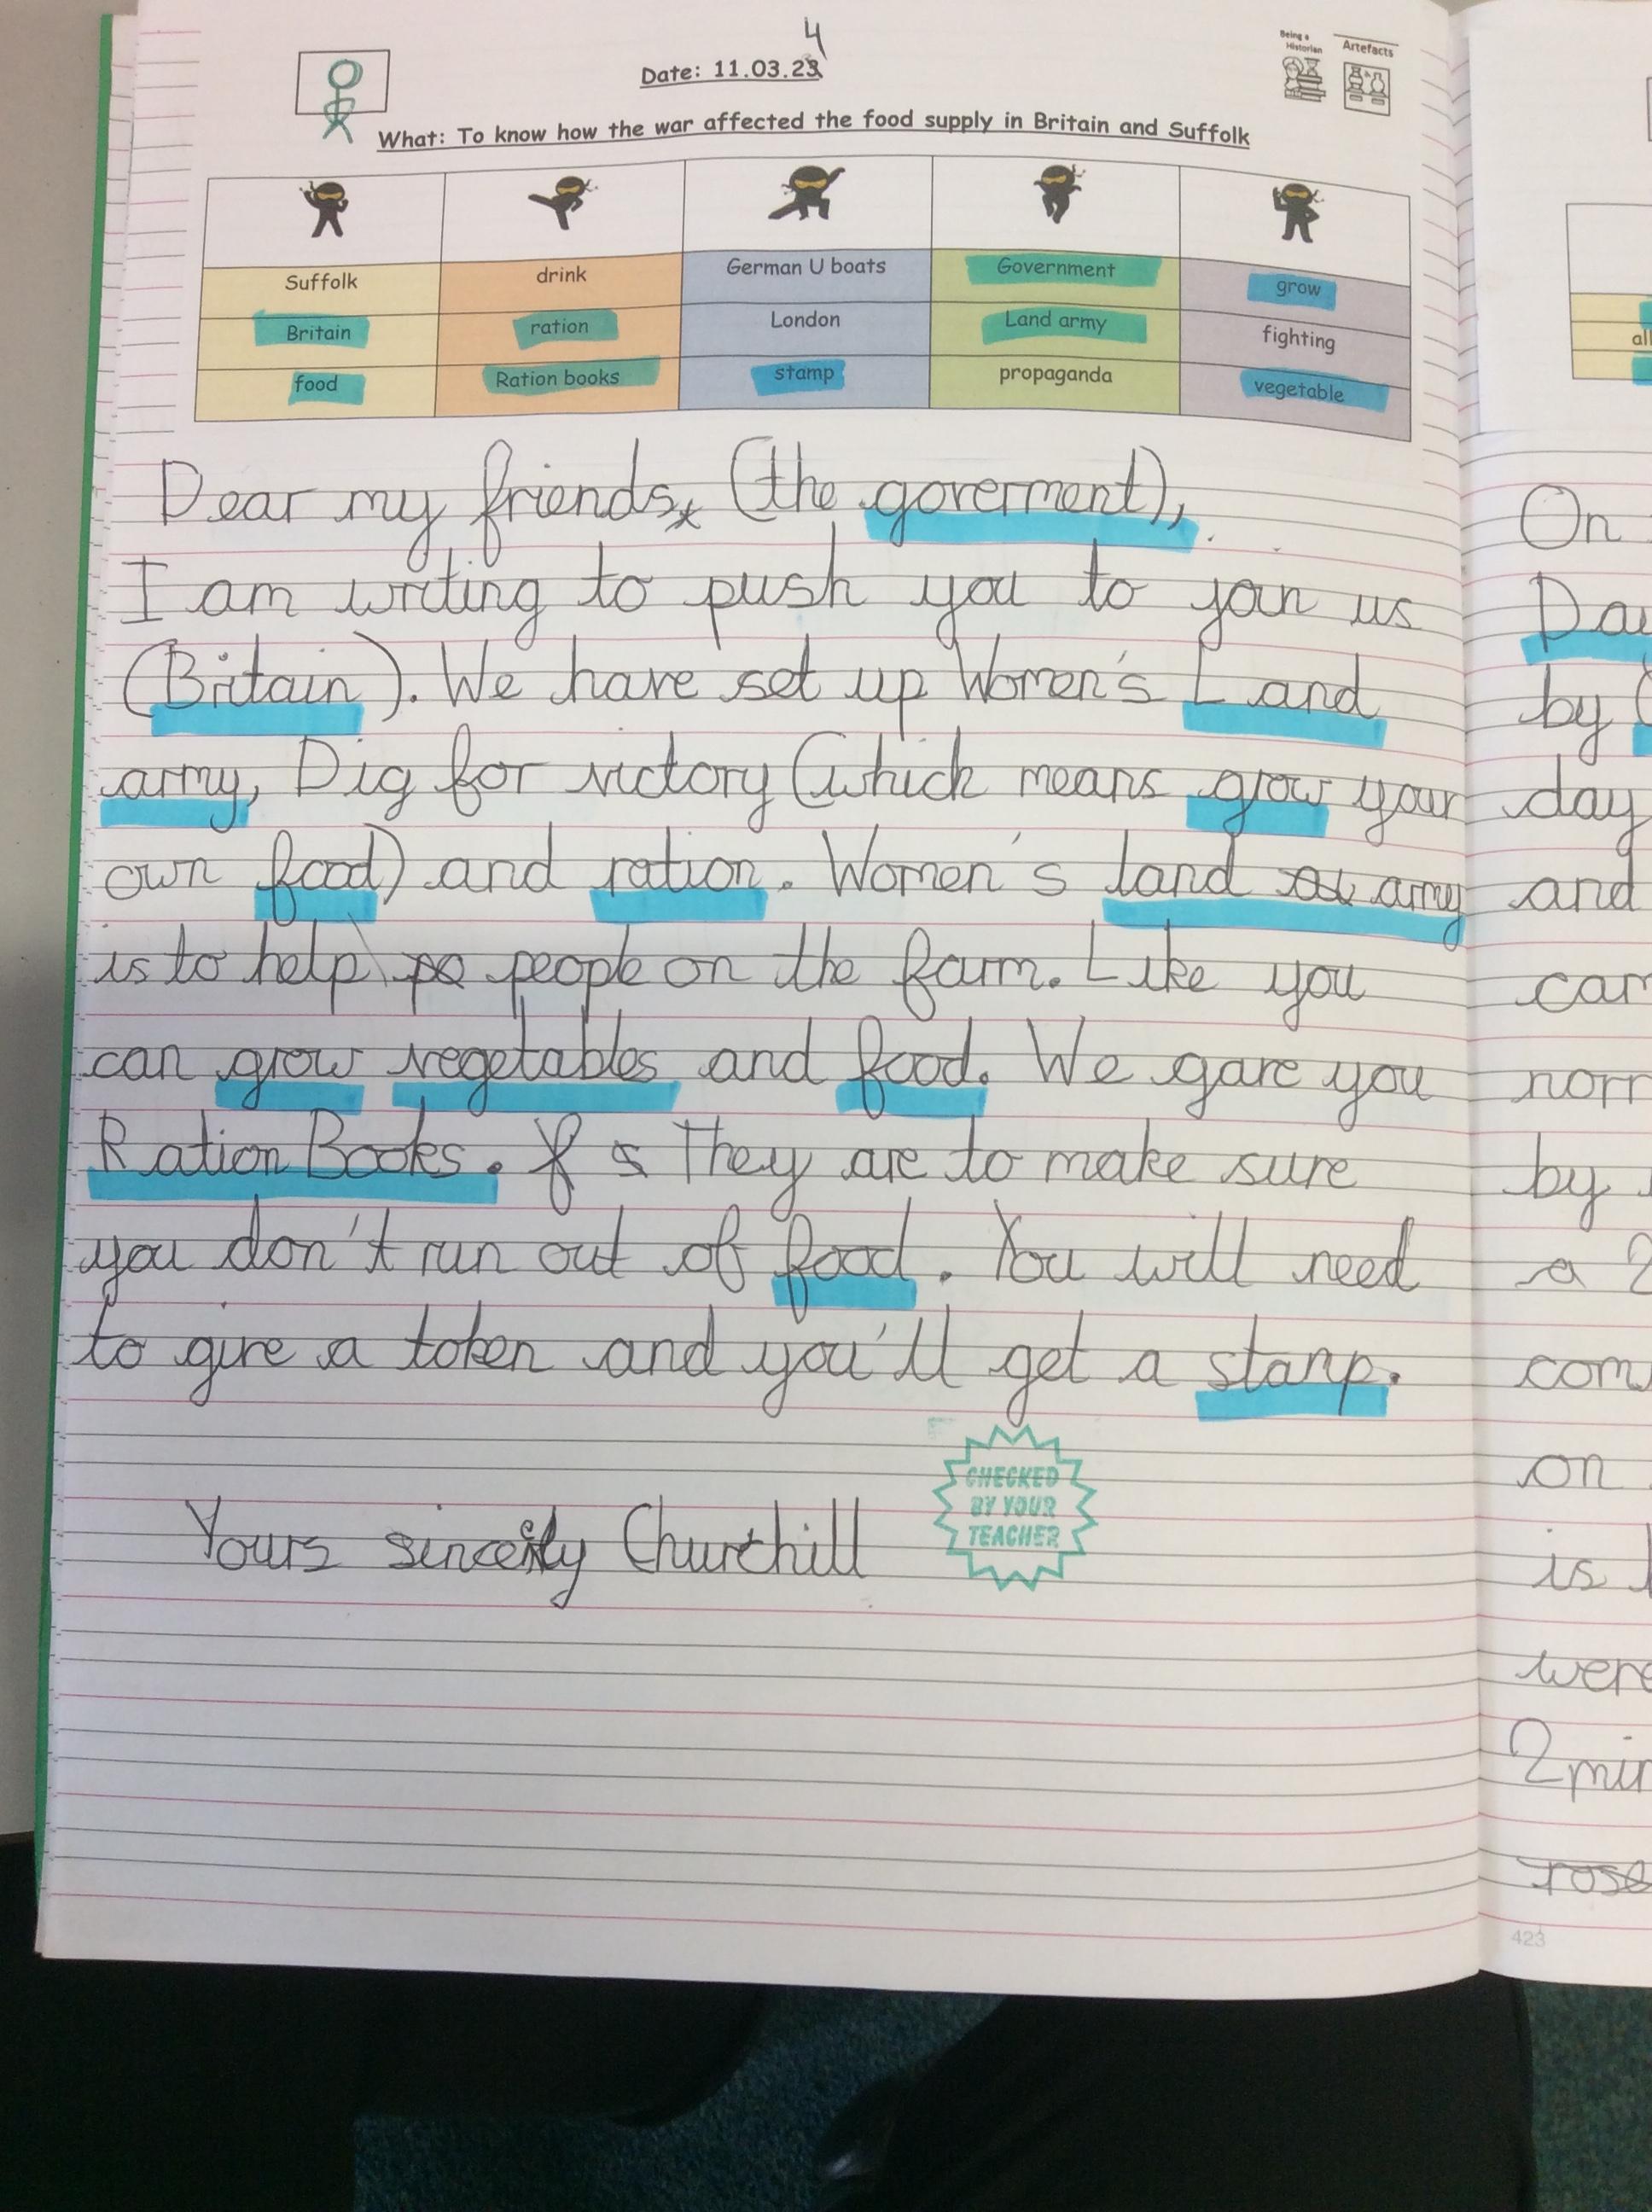 4
Date: 11.03.23
Being a Historian
Artefacts
What: To know how the war affected the food supply in Britain and Suffolk
Suffolk drink German U boats Government grow
Britain ration London Land army fighting
food Ration books stamp propaganda vegetable
Dear my friends, (the goverment),
I am writing to push you to join us
(Britain). We have set up Women's Land
army, Dig for victory (which means grow your
own food) and ration. Women's land army
is to help people on the farm. Like you
can grow vegetables and food. We gave you
Ration Books. They are to make sure
you don't run out of food. You will need
to give a token and you'll get a stamp.
CHECKED
BY YOUR
TEACHER
Yours sincerly Churchill
On
by
day
and
by
a 2
on
is
were
2 min
rose
423